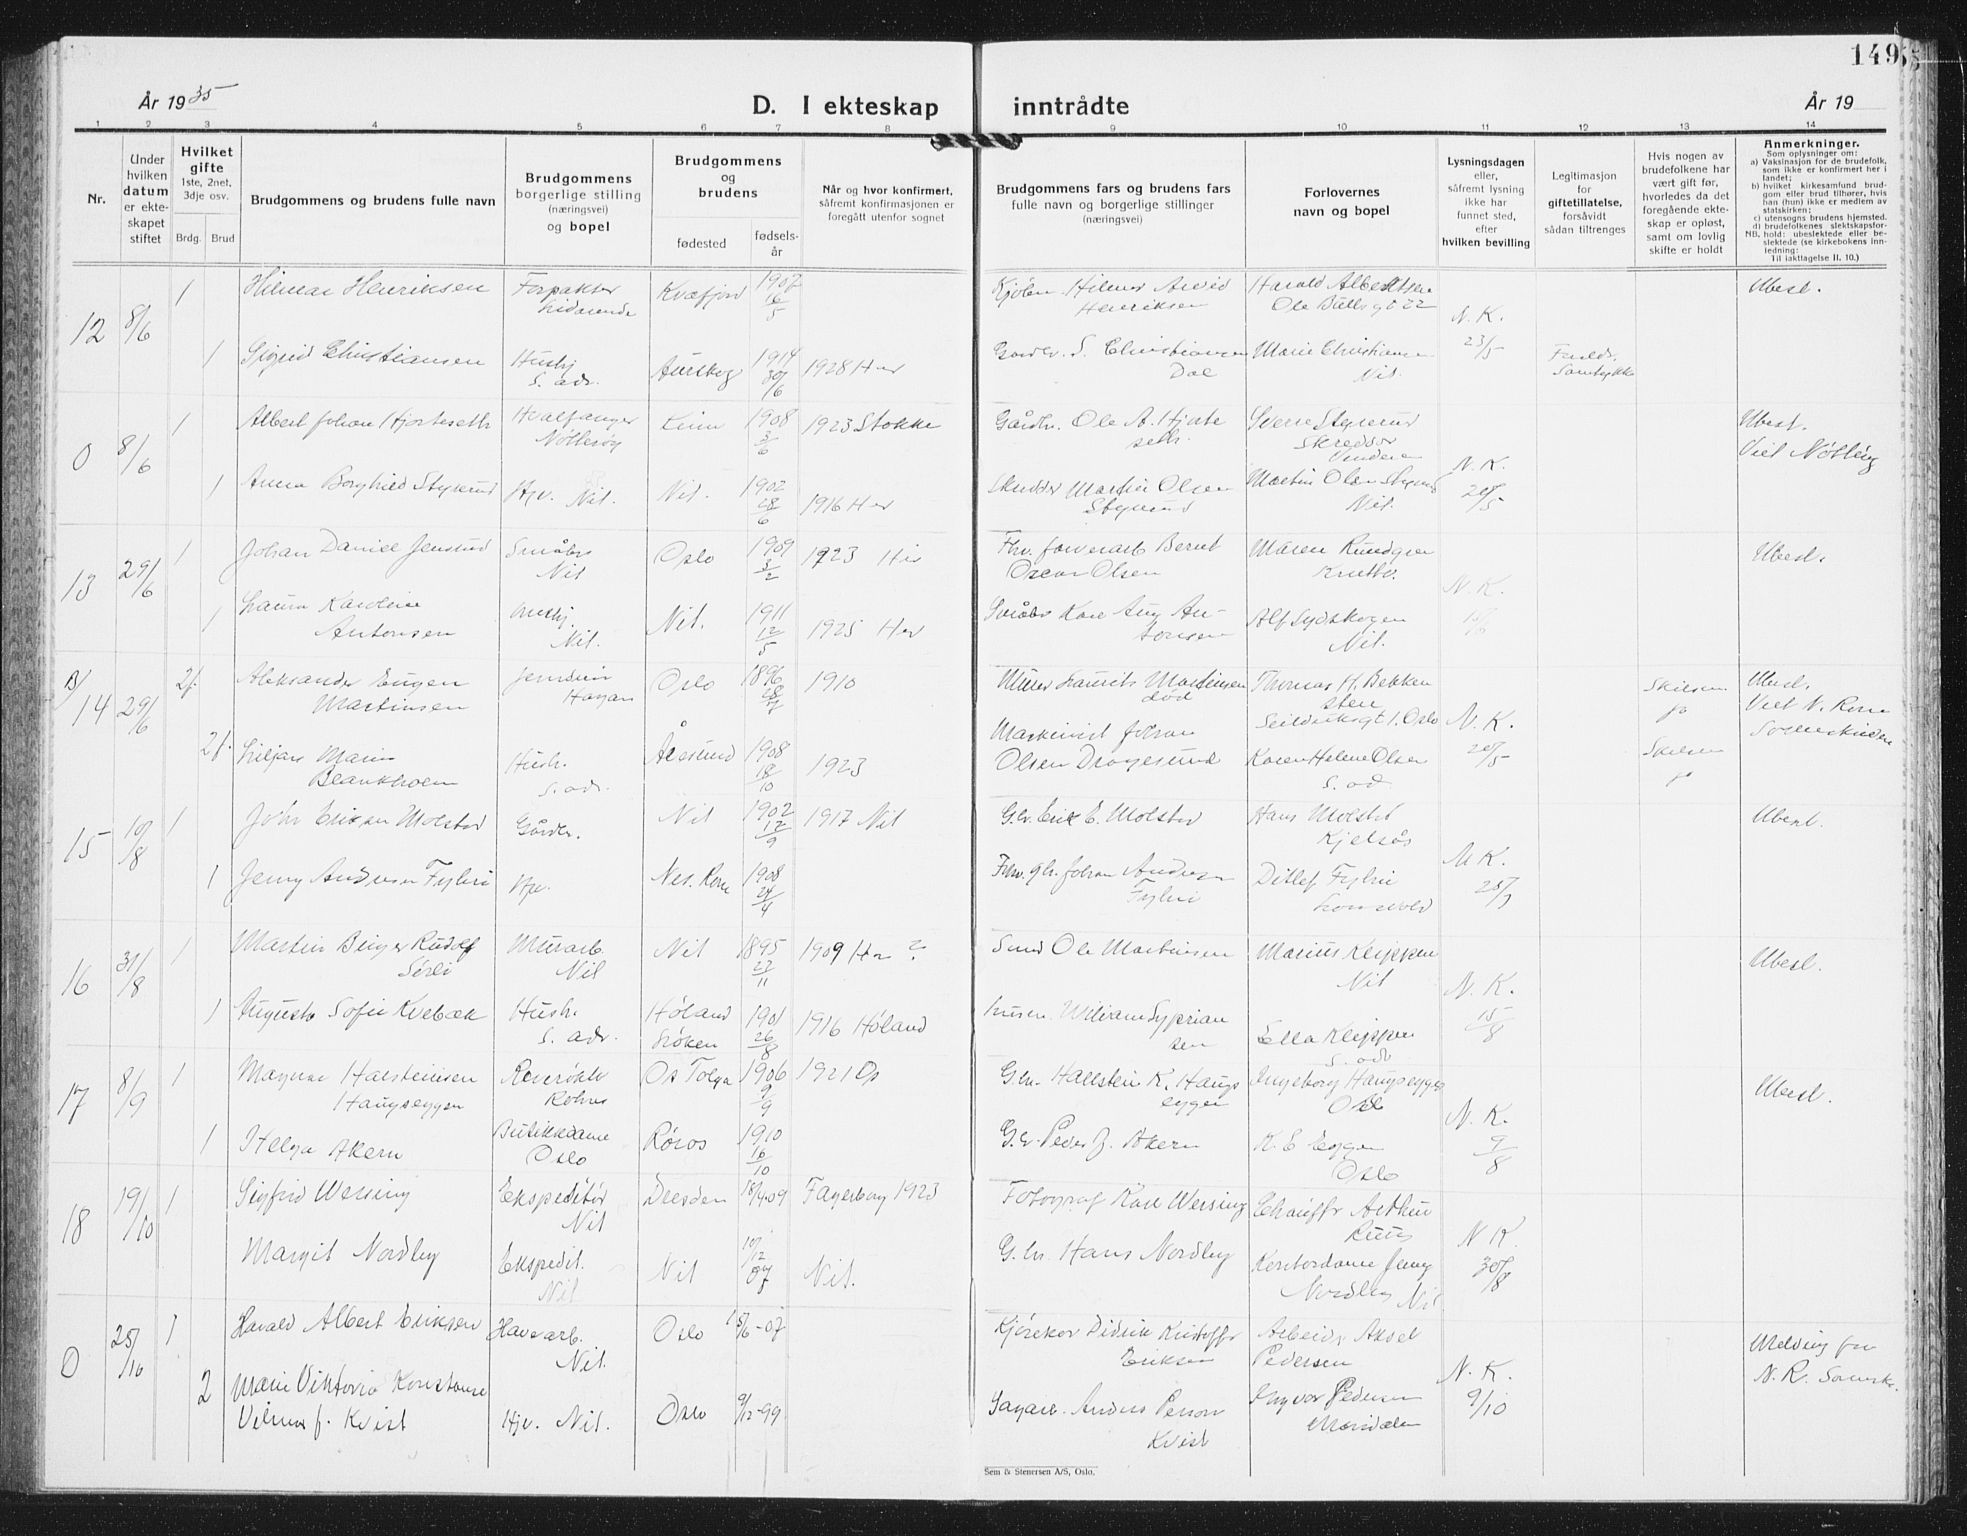 149
År 1935
D. I ekteskap inntrådte
År 19
1 2 3 4 5 6 7 8 9 10 11 12 13 14
Nr.
Under
hvilken
datum
er ekte-
skapet
stiftet
Hvilket
gifte
1ste, 2net,
3dje osv.
Brdg. Brud
Brudgommens og brudens fulle navn
Brudgommens
borgerlige stilling
(næringsvei)
og bopel
Brudgommens
og
brudens
fødested
fødsels-
år
Når og hvor konfirmert,
såfremt konfirmasjonen er
foregått utenfor sognet
Brudgommens fars og brudens fars
fulle navn og borgerlige stillinger
(næringsvei)
Forlovernes
navn og bopel
Lysningsdagen
eller,
såfremt lysning
ikke har
funnet sted,
efter
hvilken bevilling
Legitimasjon
for
giftetillatelse,
forsåvidt
sådan tiltrenges
Hvis nogen av
brudefolkene har
vært gift før,
hvorledes da det
foregående ekte-
skap er opløst,
samt om lovlig
skifte er holdt
Anmerkninger.
Som oplysninger om:
a) Vaksinasjon for de brudefolk,
som ikke er konfirmert her i
landet;
b) hvilket kirkesamfund brud-
gom eller brud tilhører, hvis
han (hun) ikke er medlem av
statskirken;
c) utensogns brudens hjemsted.
d) brudefolkenes slektskapsfor-
NB. hold: ubeslektede eller be-
slektede (se kirkebokens inn-
ledning:
Til iakttagelse II. 10.)
12 8/6 1 Hilmar Henriksen Forpakter Kvæfjord 1907 16/5
Hilmar Arvid
Henriksen
Harald Albertsen
Ole Bullsgt 22
N. K.
23/5
Ubesl.
1 Sigrid Christiansen Husbj.
s. adr.
Aurskog 1914 30/6 1928 Her
S. Christiansen
Dal
Marie Christiansen
Nit.
Samtykke
0 8/6 1 Albert Johan Hjorteseth Hvalfanger
Nøtterøy
Kinn 1908 3/6 1923 Stokke
Gårdbr. Ole A. Hjorte
seth.
Sverre Styrerud
Ubesl.
Viet Nøtterøy
1 Anna Borghild Styrerud Hjv. Nit. Nit. 1902 28/6 1916 Her
Skredder Martin Olsen
Styrerud
Martin Olsen Styrerud
Nit.
N. K.
20/5
13 29/6 1 Johan Daniel Jensrud Småbr.
Nit
Oslo 1909 3/2 1923 Her
Bernt
Oscar Olsen
Maren Rundgren
N. K.
Ubesl.
1 Laura Karoline
Antonsen
Nit. Nit. 1911 12/5 1925 Her
Småbr. Karl Aug An-
tonsen
Alf Sydskogen
Nit.
B/ 14 29/6 2f. Aleksander Eugen
Martinsen
Oslo 1896 1910
Murer Laurits Martinsen
død
Thomas H. Bekken
sten
Seilduksgt 1. Oslo
N. K.
20/5
Skilsm
jo
Ubesl.
2f. Liljan Marie
Blankholm
Hush.
s. adr.
Ålesund 1908 18/10 1923
Maskinist Johan
Olsen Dragesund
Karen Helene Olsen
s. ad.
Skilsm
jo
15 10/8 1 John Eriksen Molstad Gårdbr. Nit 1902 12/9 1917 Nit
G.br. Erik E. Molstad
Hans Molstad
Kjelsås
N. K.
Ubesl.
1 Jenny Andresen Fylling Hjv. Nes. Rom. 1908 24/4
Johan Andresen
Ditlef
16 31/8 1 Martin Birger Rudolf
Sørli
Murarb.
Nit
Nit 1895 23/11 1909 Her ?
Ole Martinsen
Marius Kleppen
Nit
N. K.
15/8
Ubesl.
1 Augusta Sofie Kvebæk Hush.
s. adr.
Høland
Løken
1901 26/8 1916 Høland
William Syprian
sen
Ella Kleppen
s. adr
17 8/9 1 Magnar Hallsteinsen
Haugseggen
Røros
Os Tolga 1906 9/9 1921 Os
G.br. Hallstein K. Haugs
eggen
Ingeborg Haugseggen
Oslo
N. K.
9/8
Ubesl.
1 Helga Akern Butikkdame
Oslo
Røros 1910 16/10
G.br. Peder J. Akern
K. E. Eggen
Oslo
18 19/10 1 Sigfrid Wersing Ekspeditør
Nit
Dresden 18/4.09 Fagerborg 1923
Fotograf Karl Wersing
Chauffr Arthur
Ruus
N K.
30/8
Margit Nordby Ekspedit.
Nit
Nit 10/12 07 Nit.
G.br. Hans Nordby
Kontordame Jenny
Nordby Nit
0 25/10 1 Harald Albert Eriksen Havearb.
Nit.
Oslo 15/6-07
Kjørekar Didrik Kristoffer
Eriksen
Arbeider Aksel
Pedersen
N. K.
9/10
Melding fra
N. R.
2 Marie Viktoria Konstanse
Vilma f. Kvist
Hjv. Nit. Oslo 9/12-99
Sagarb. Anders Person
Kvist
Ingvar Pedersen
Maridalen
Sem & Stenersen A/S, Oslo.